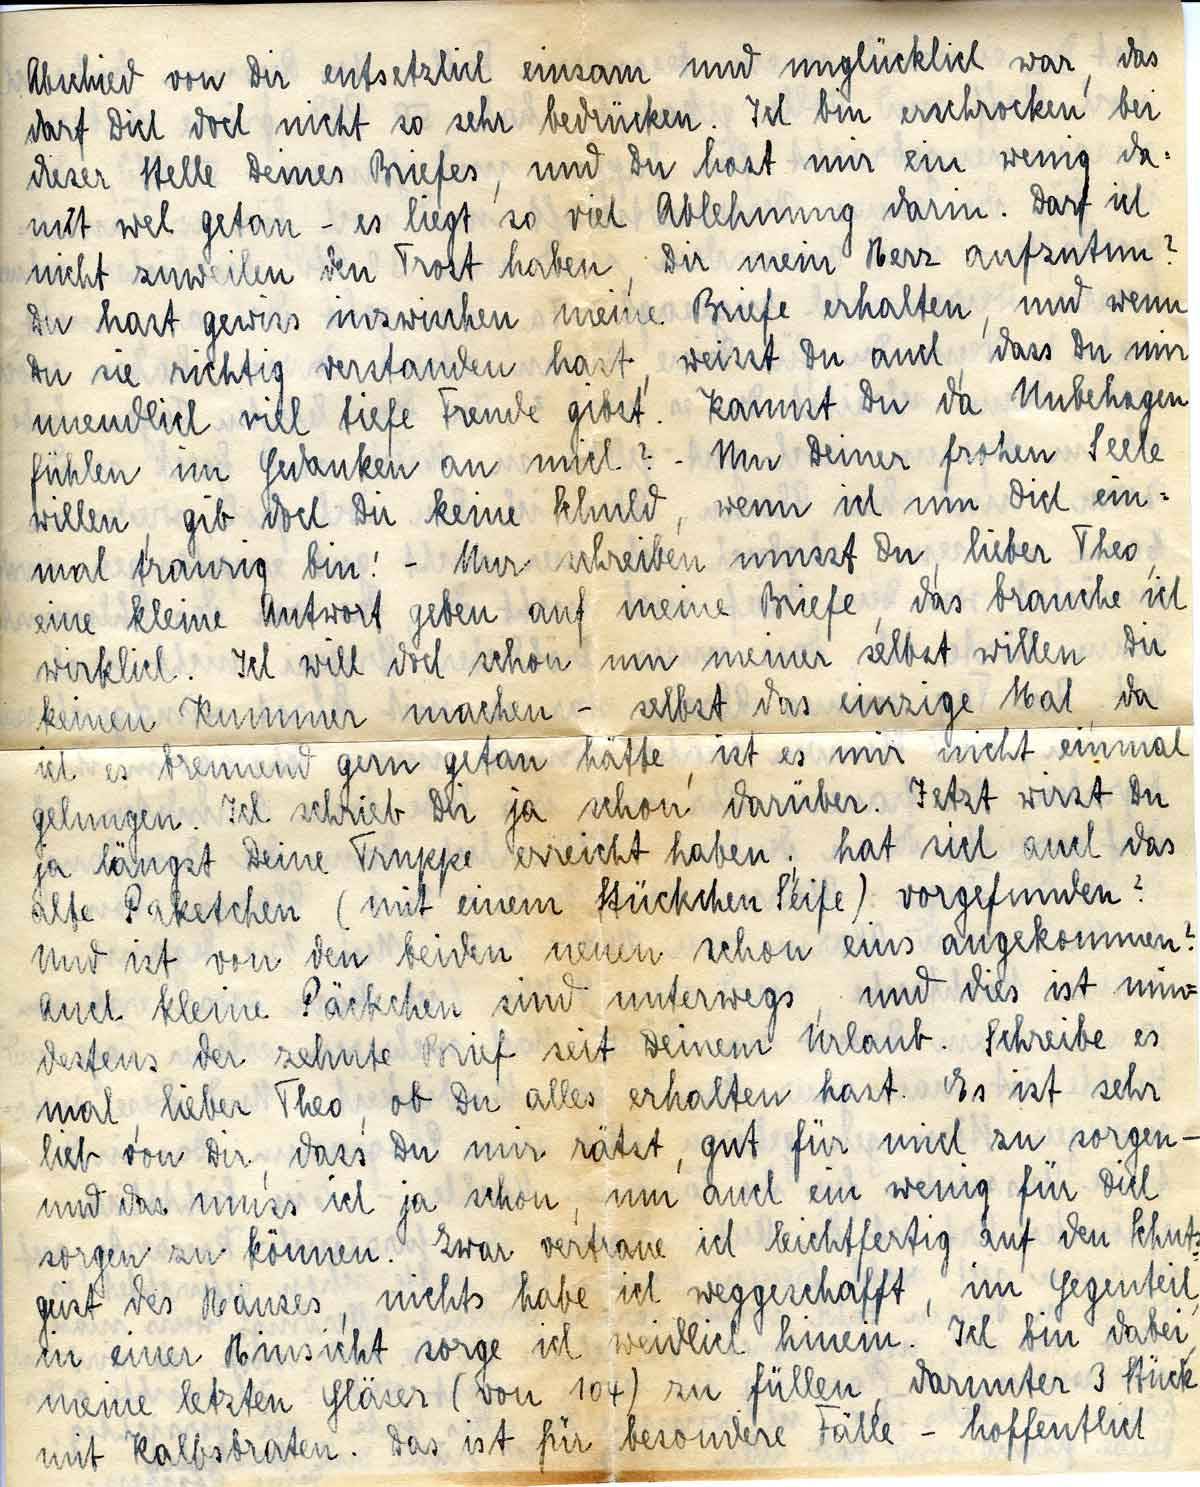 Abschied von Dir entsetzlich einsam und unglücklich war, das
darf Dich doch nicht so sehr bedrücken. Ich bin erschrocken bei
dieser Stelle Deines Briefes, und Du hast mir ein wenig da-
mit weh getan - es liegt so viel Ablehnung darin. Darf ich
nicht zuweilen den Trost haben, Dir mein Herz aufzutun?
Du hast gewiss inzwischen meine Briefe erhalten, und wenn
Du sie richtig verstanden hast, weisst Du auch, dass Du mir
unendlich viel tiefe Freude gibst. Kannst Du da Unbehagen
fühlen im Gedanken an mich? - Um Deiner frohen Seele
willen, gib doch Dir keine Schuld, wenn ich um Dich ein-
mal traurig bin! - Nur schreiben musst Du, lieber Theo,
eine kleine Antwort geben auf meine Briefe, das brauche ich
wirklich. Ich will doch schon um meiner selbst willen Dir
keinen Kummer machen - selbst das einzige Mal, da
ich es brennend gern getan hätte, ist es mir nicht einmal
gelungen. Ich schrieb Dir ja schon darüber. Jetzt wirst Du
ja längst Deine Truppe erreicht haben, hat sich auch das
alte Paketchen (mit einem Stückchen Seife) vorgefunden?
Und ist von den beiden neuen schon eins angekommen?
Auch kleine Päckchen sind unterwegs, und dies ist min-
destens der zehnte Brief seit Deinem Urlaub. Schreibe es
mal, lieber Theo, ob Du alles erhalten hast. Es ist sehr
lieb von Dir, dass Du mir rätst, gut für mich zu sorgen -
und das muss ich ja schon, um auch ein wenig für Dich
sorgen zu können. Zwar vertraue ich leichtfertig auf den Schutz-
geist des Hauses, nichts habe ich weggeschafft, im Gegenteil,
in einer Hinsicht sorge ich weidlich hinein. Ich bin dabei,
meine letzten Gläser (von 104) zu füllen, darunter 3 Stück
mit Kalbsbraten. Das ist für besondere Fälle - hoffentlich